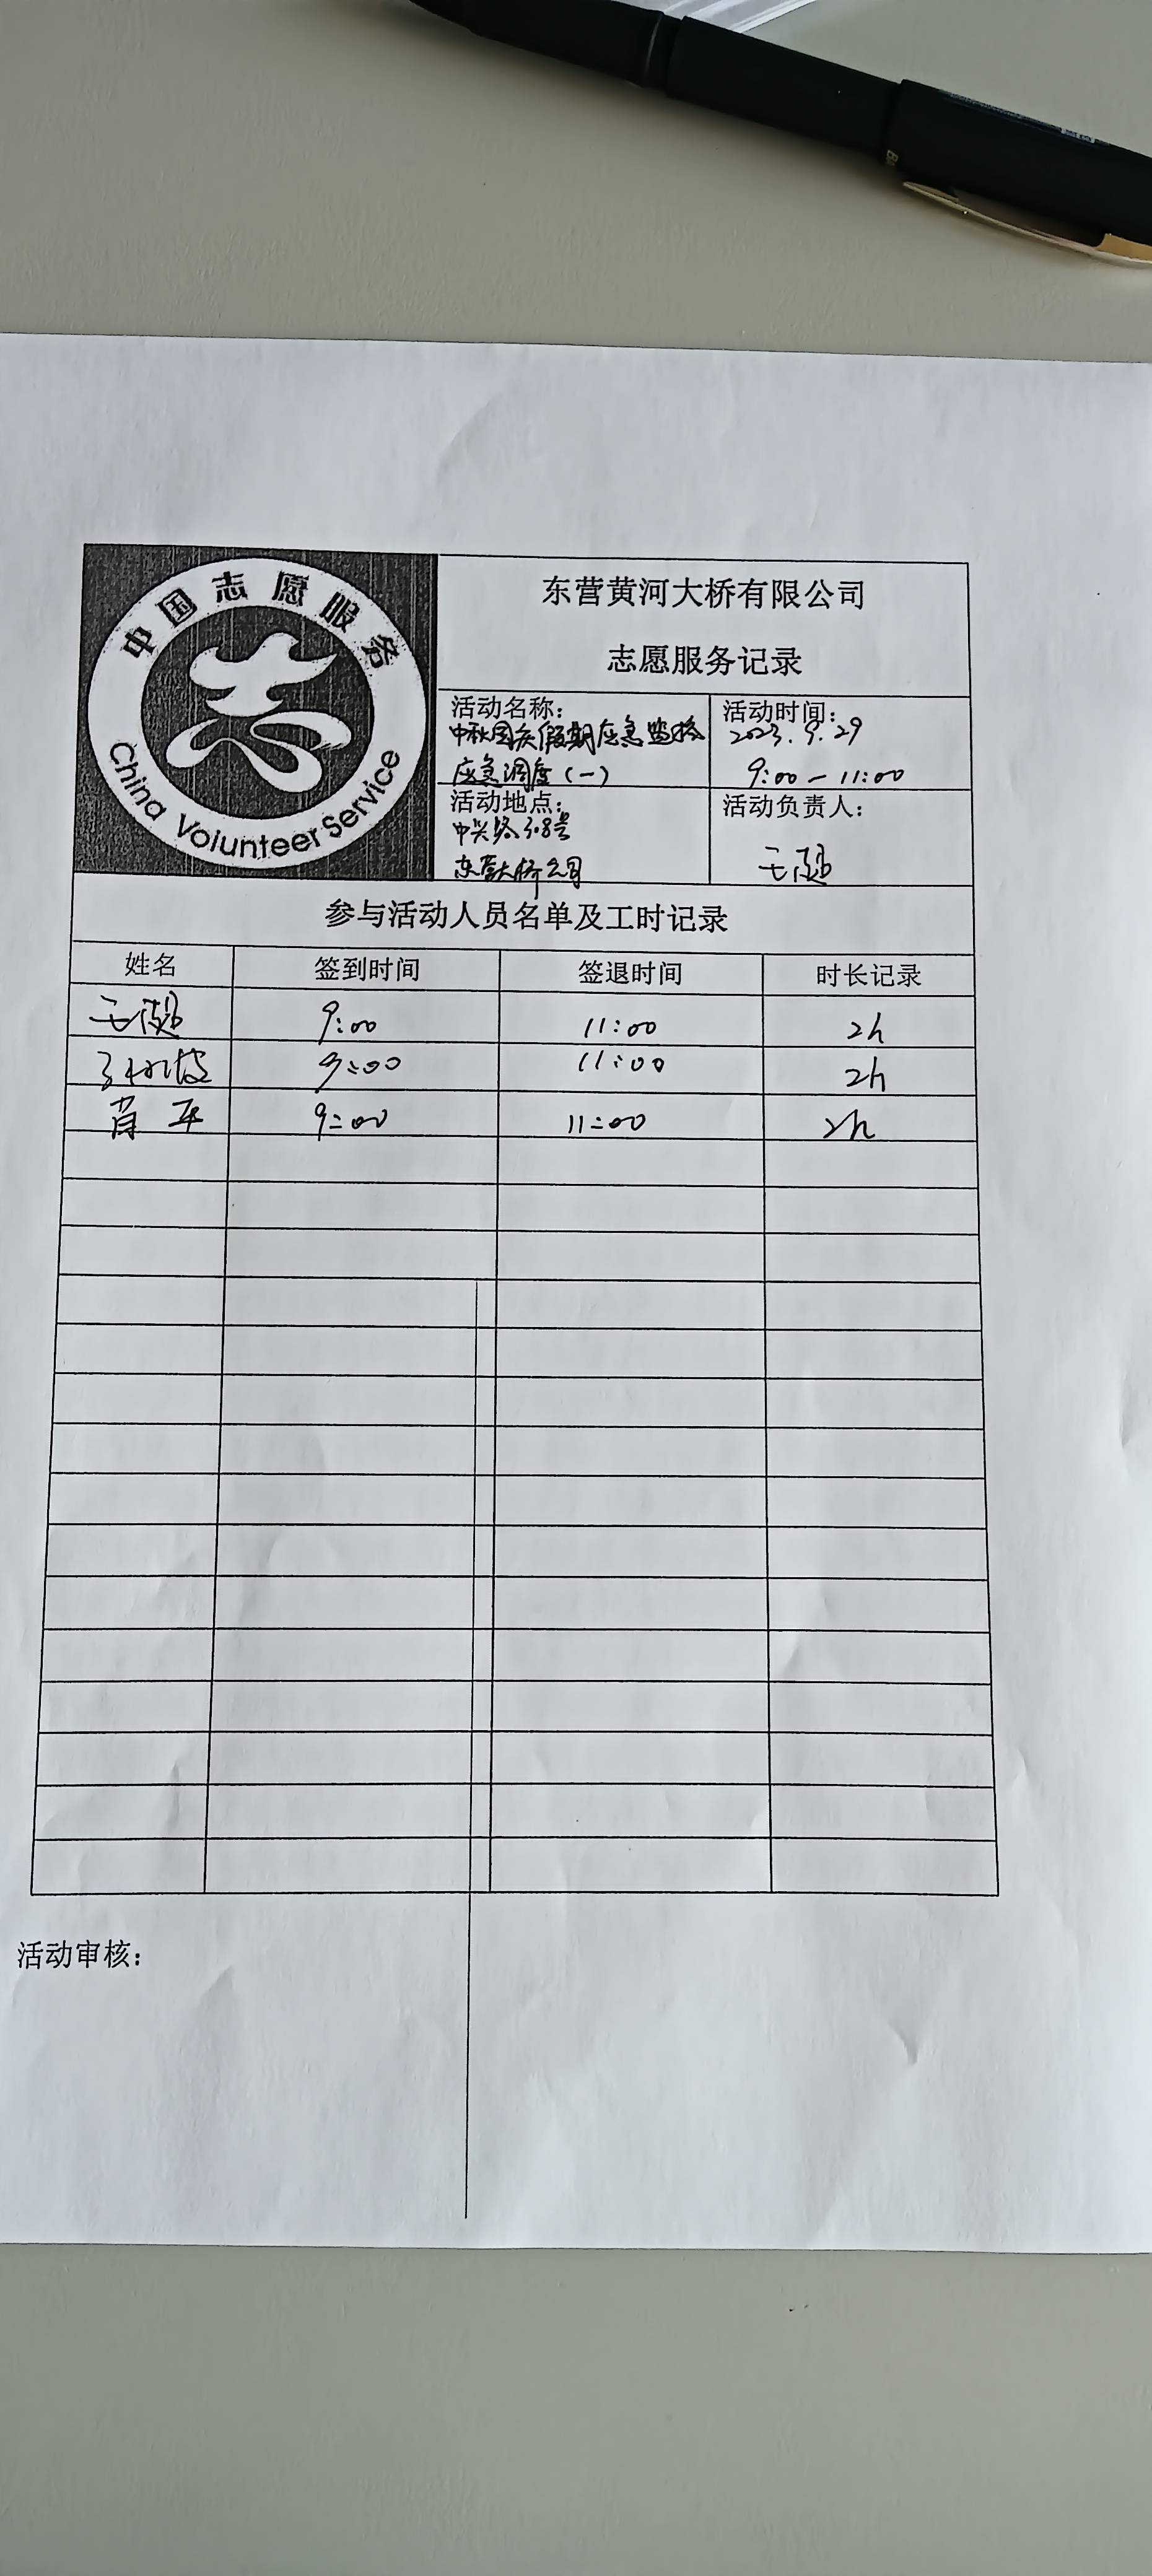 中国志愿服务
China Volunteer Service
东营黄河大桥有限公司
志愿服务记录
活动名称：
中秋国庆假期应急监控
应急调度（一）
活动时间：
2023.9.29
9:00－11:00
活动地点：
中兴路308号
东营大桥公司
活动负责人：
王
参与活动人员名单及工时记录
姓名 签到时间 签退时间 时长记录
王 9:00 11:00 2h
9:00 11:00 2h
肖平 9:00 11:00 2h
活动审核：